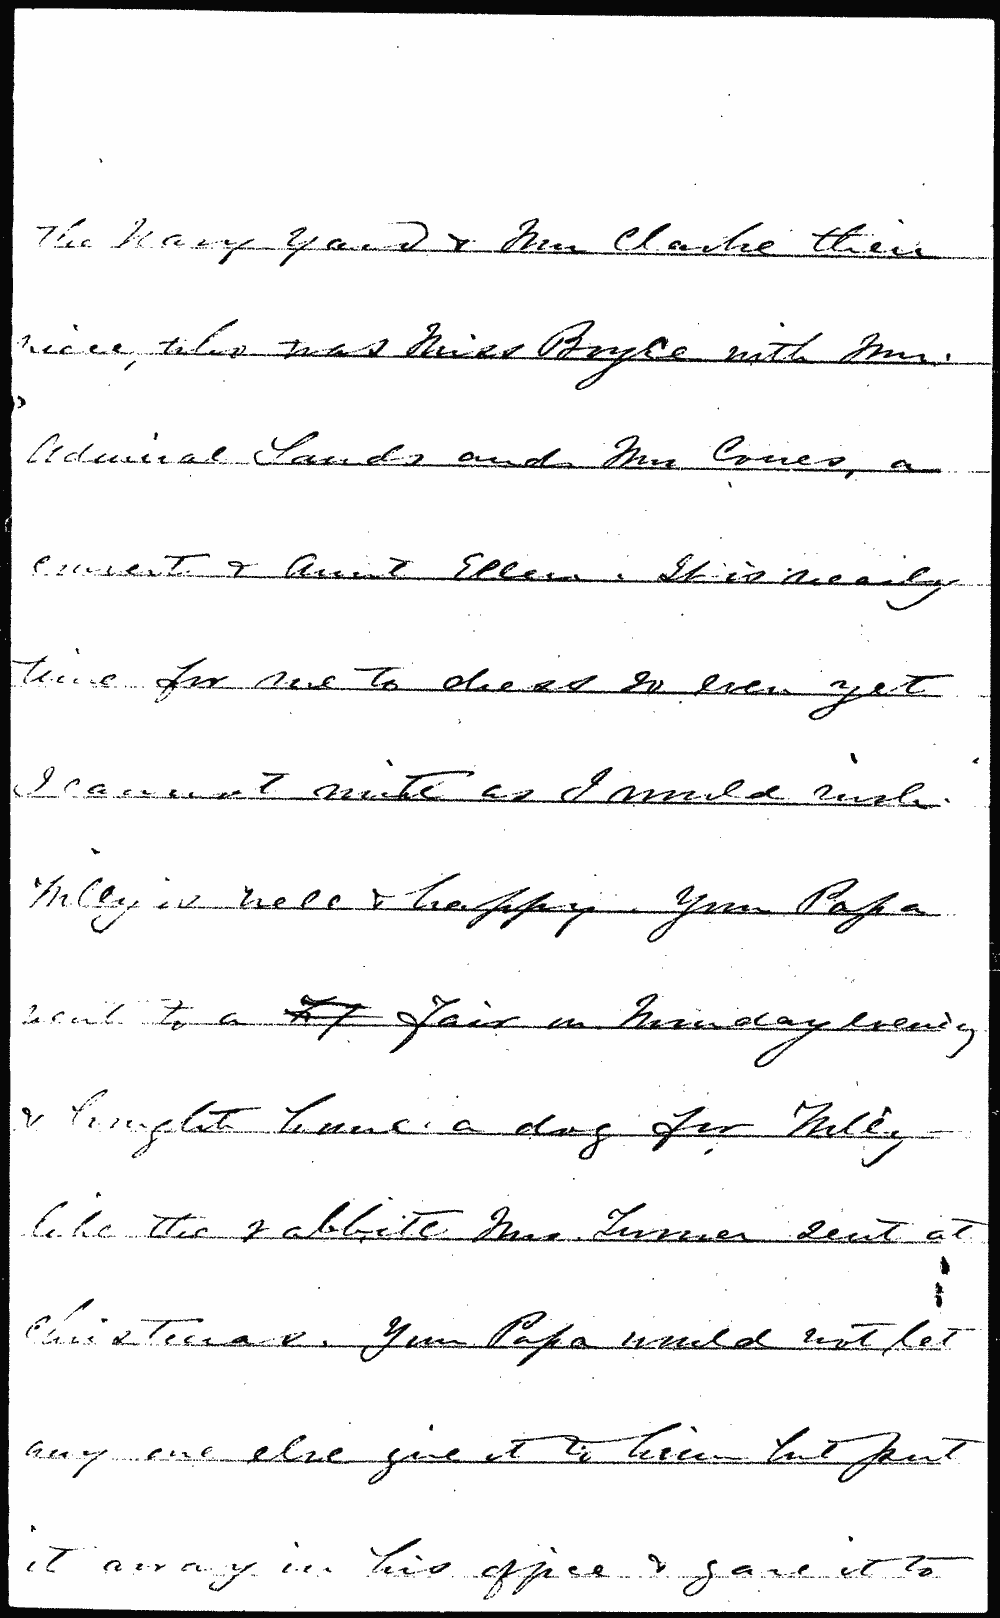 The Navy Yard & Mrs Clarke their
niece, who was Miss Boyce with Mrs.
Admiral Sands and Mrs Coues, a
convert & Aunt Ellen. It is nearly
time for me to dress so even yet
I cannot write as I would wish.
Willy is well & happy. Your Papa
went to a Fair on Monday evening
& brought home a dog for Willy
like the rabbits Mrs. Turner sent at
Christmas. Your Papa would not let
any one else give it to him but put
it away in his office & gave it to